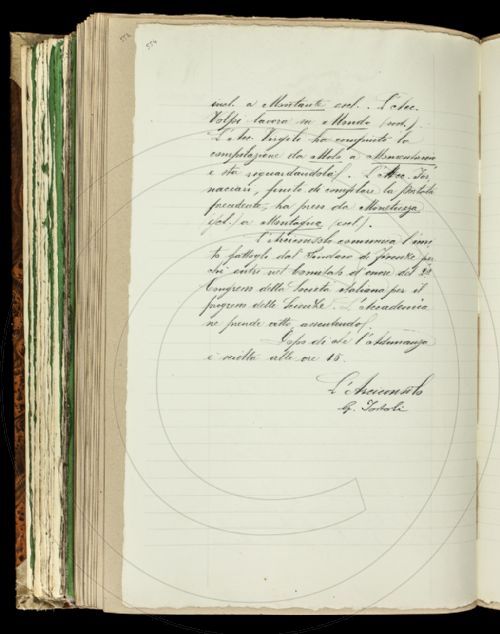 554
incl. a Montante escl. . L'Acc.
Volpi lavora su Mondo (incl.)
L'Acc. Virgili ha compiuto la
compilazione da Molo a Monocolo
e sta riguardandola. L'Acc. For
naciari, finito di compilare la
precedente, ha preso da Monetuzza
(incl.) a Montagna (escl.).
L'Arciconsolo comunica l'invi
to fattogli dal Sindaco di Firenze per
chè entri nel Comitato d'onore del 2º
Congresso della Società italiana per il
progresso delle Scienze. L'Accademia
ne prende atto, assentendo.
Dopo di che l'Adunanza
è sciolta alle ore 15.
L'Arciconsolo
G. Tortoli